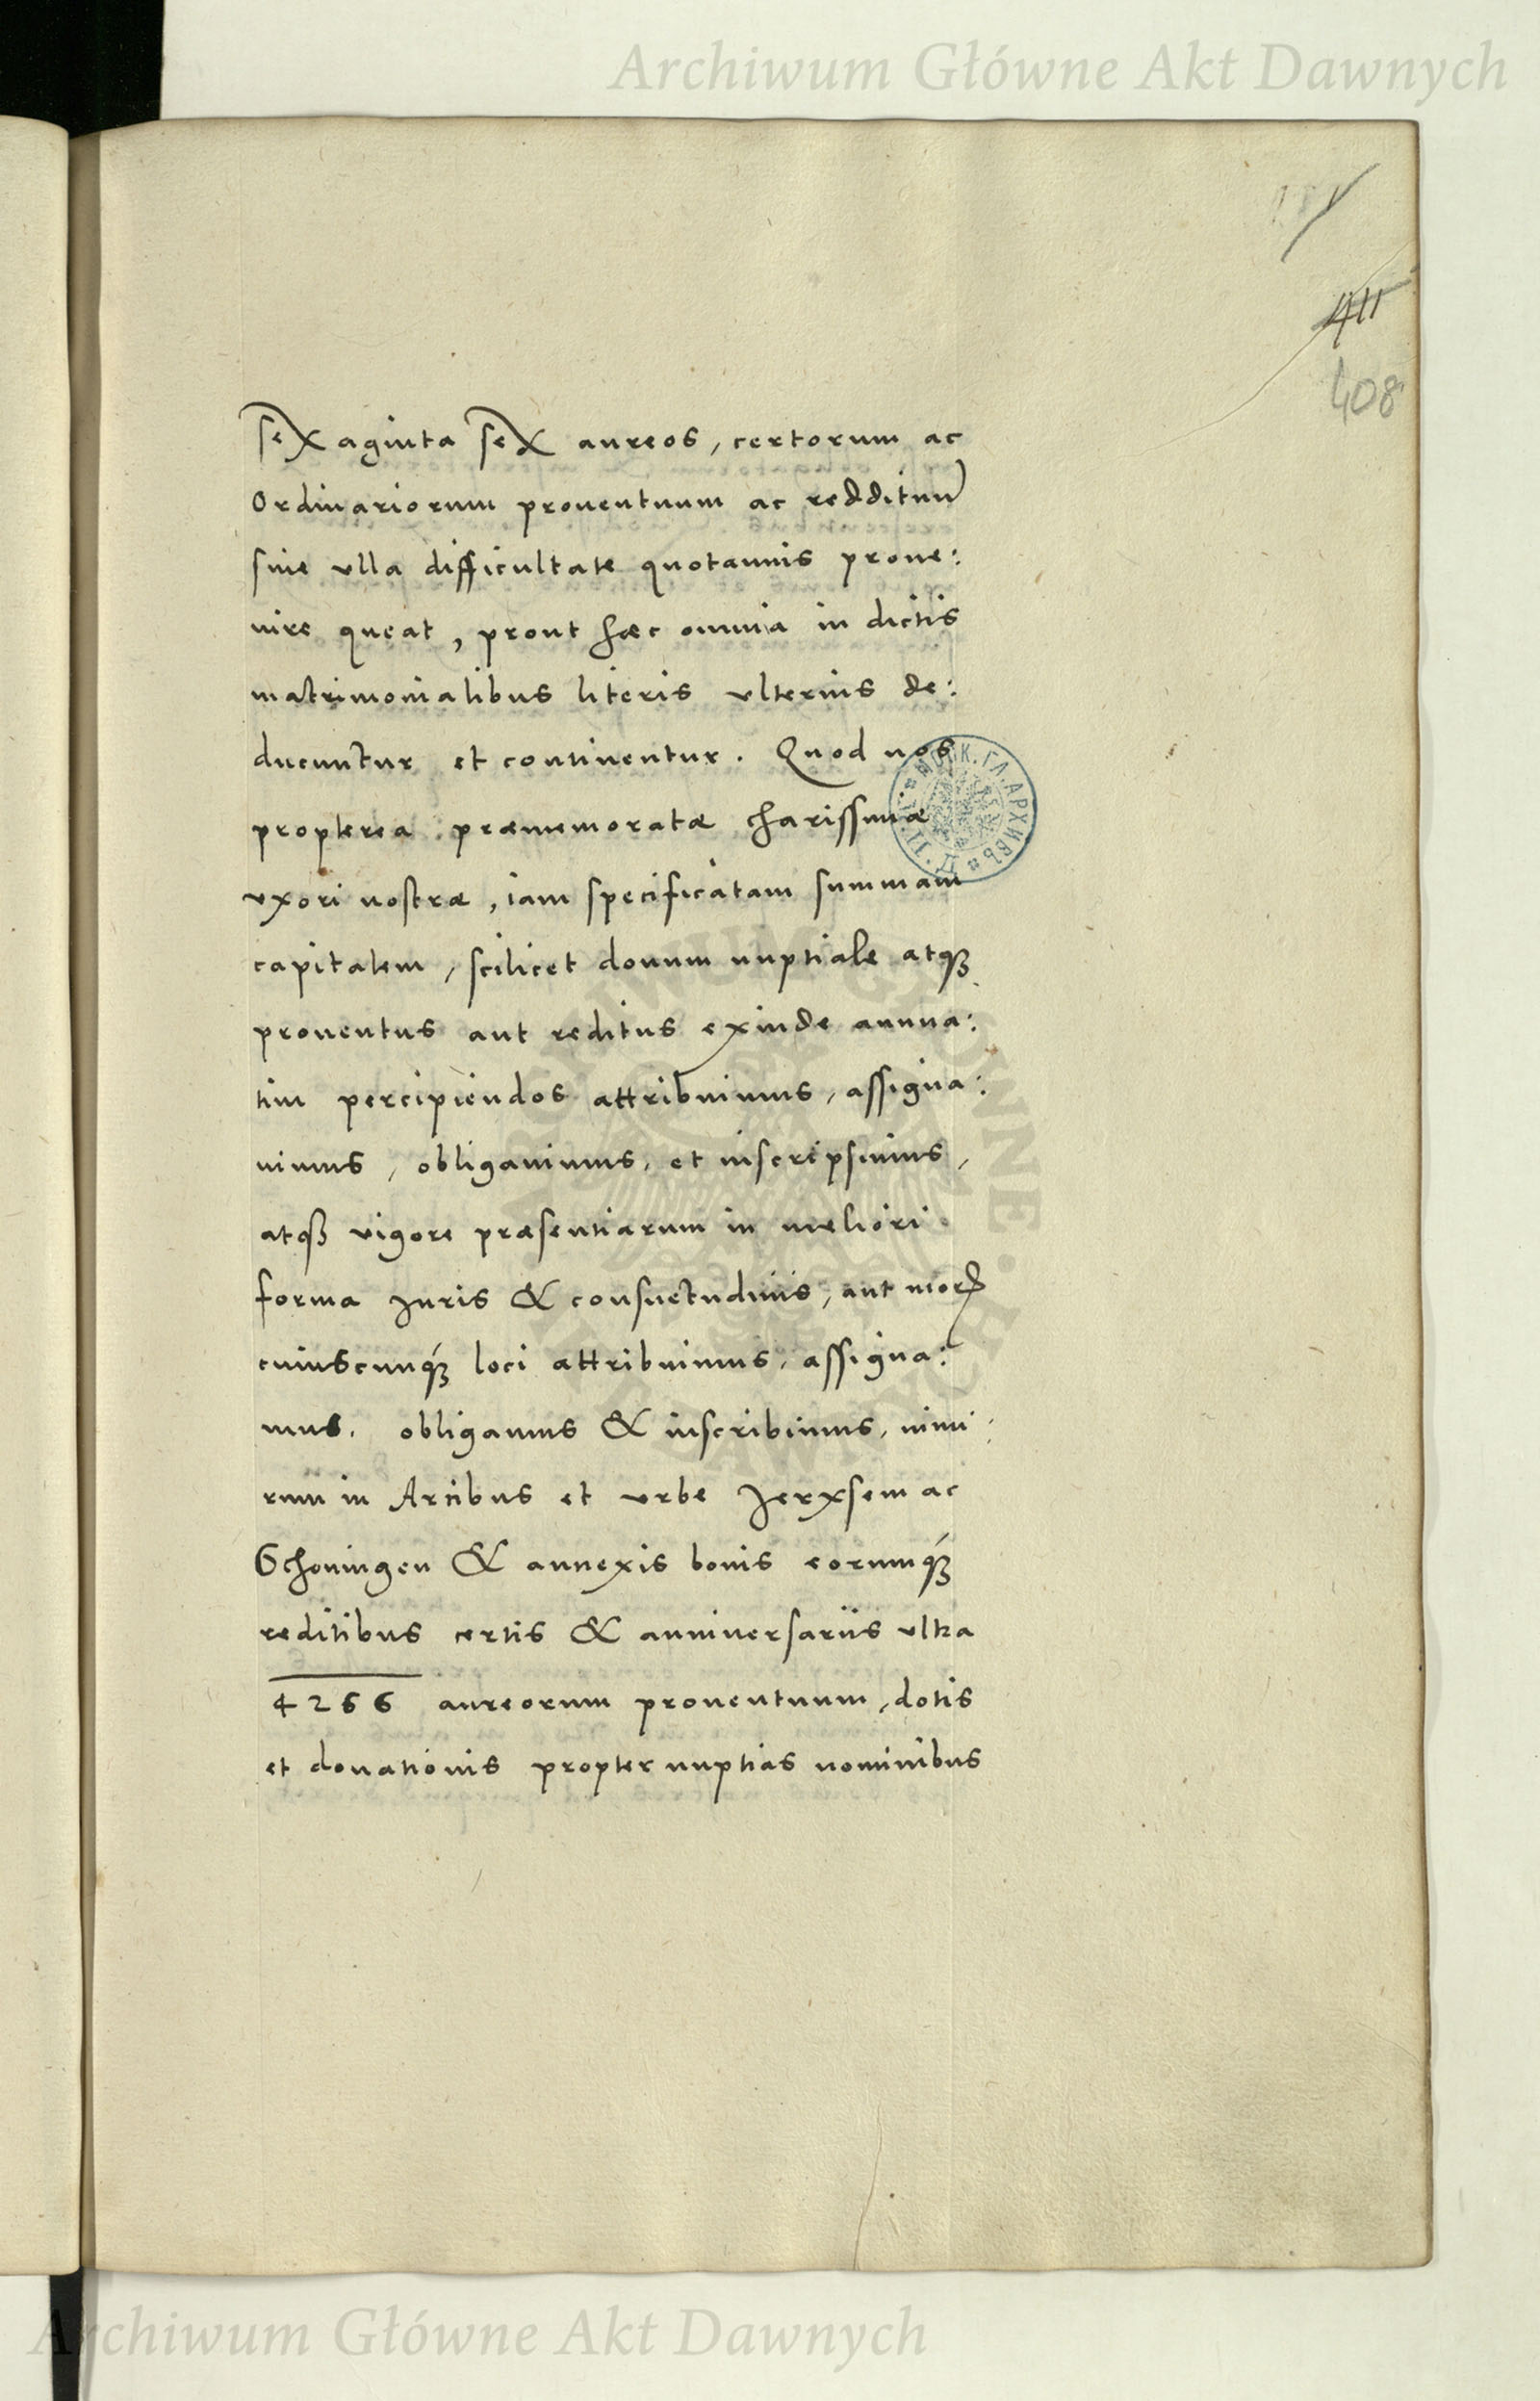 Archiwum Główne Akt Dawnych
411
408
sexaginta sex aureos, certorum ac
Ordinariorum prouentuum ac reddituũ
siue ulla difficultate quotannis proue:
nire queat, prout hæc omnia in dictis
matrimonialibus literis vlterius de:
ducuntur et continentur. Quod nos
propterea præmemoratæ charissimæ
vxori nostræ, iam specificatam summam
capitalem, scilicet donum nuptiale atqꝫ
prouentus aut reditus exinde annua:
tim percipiendos attribuimus, assigna:
uimus, obligauimus, et inscripsimus,
atqꝫ vigore præsentiarum in meliori
forma Juris & consuetudinis, aut moꝝ
cuiuscunqꝫ loci attribuimus, assigna:
mus, obligamus & inscribimus, nimi:
rum in Arcibus et vrbe Jerxsem ac
Schoningen & annexis bonis eorumqꝫ
reditibus certis & anniuersariis vltra
4266 aureorum prouentuum, dotis
et donationis propter nuptias nominibus
Archiwum Główne Akt Dawnych